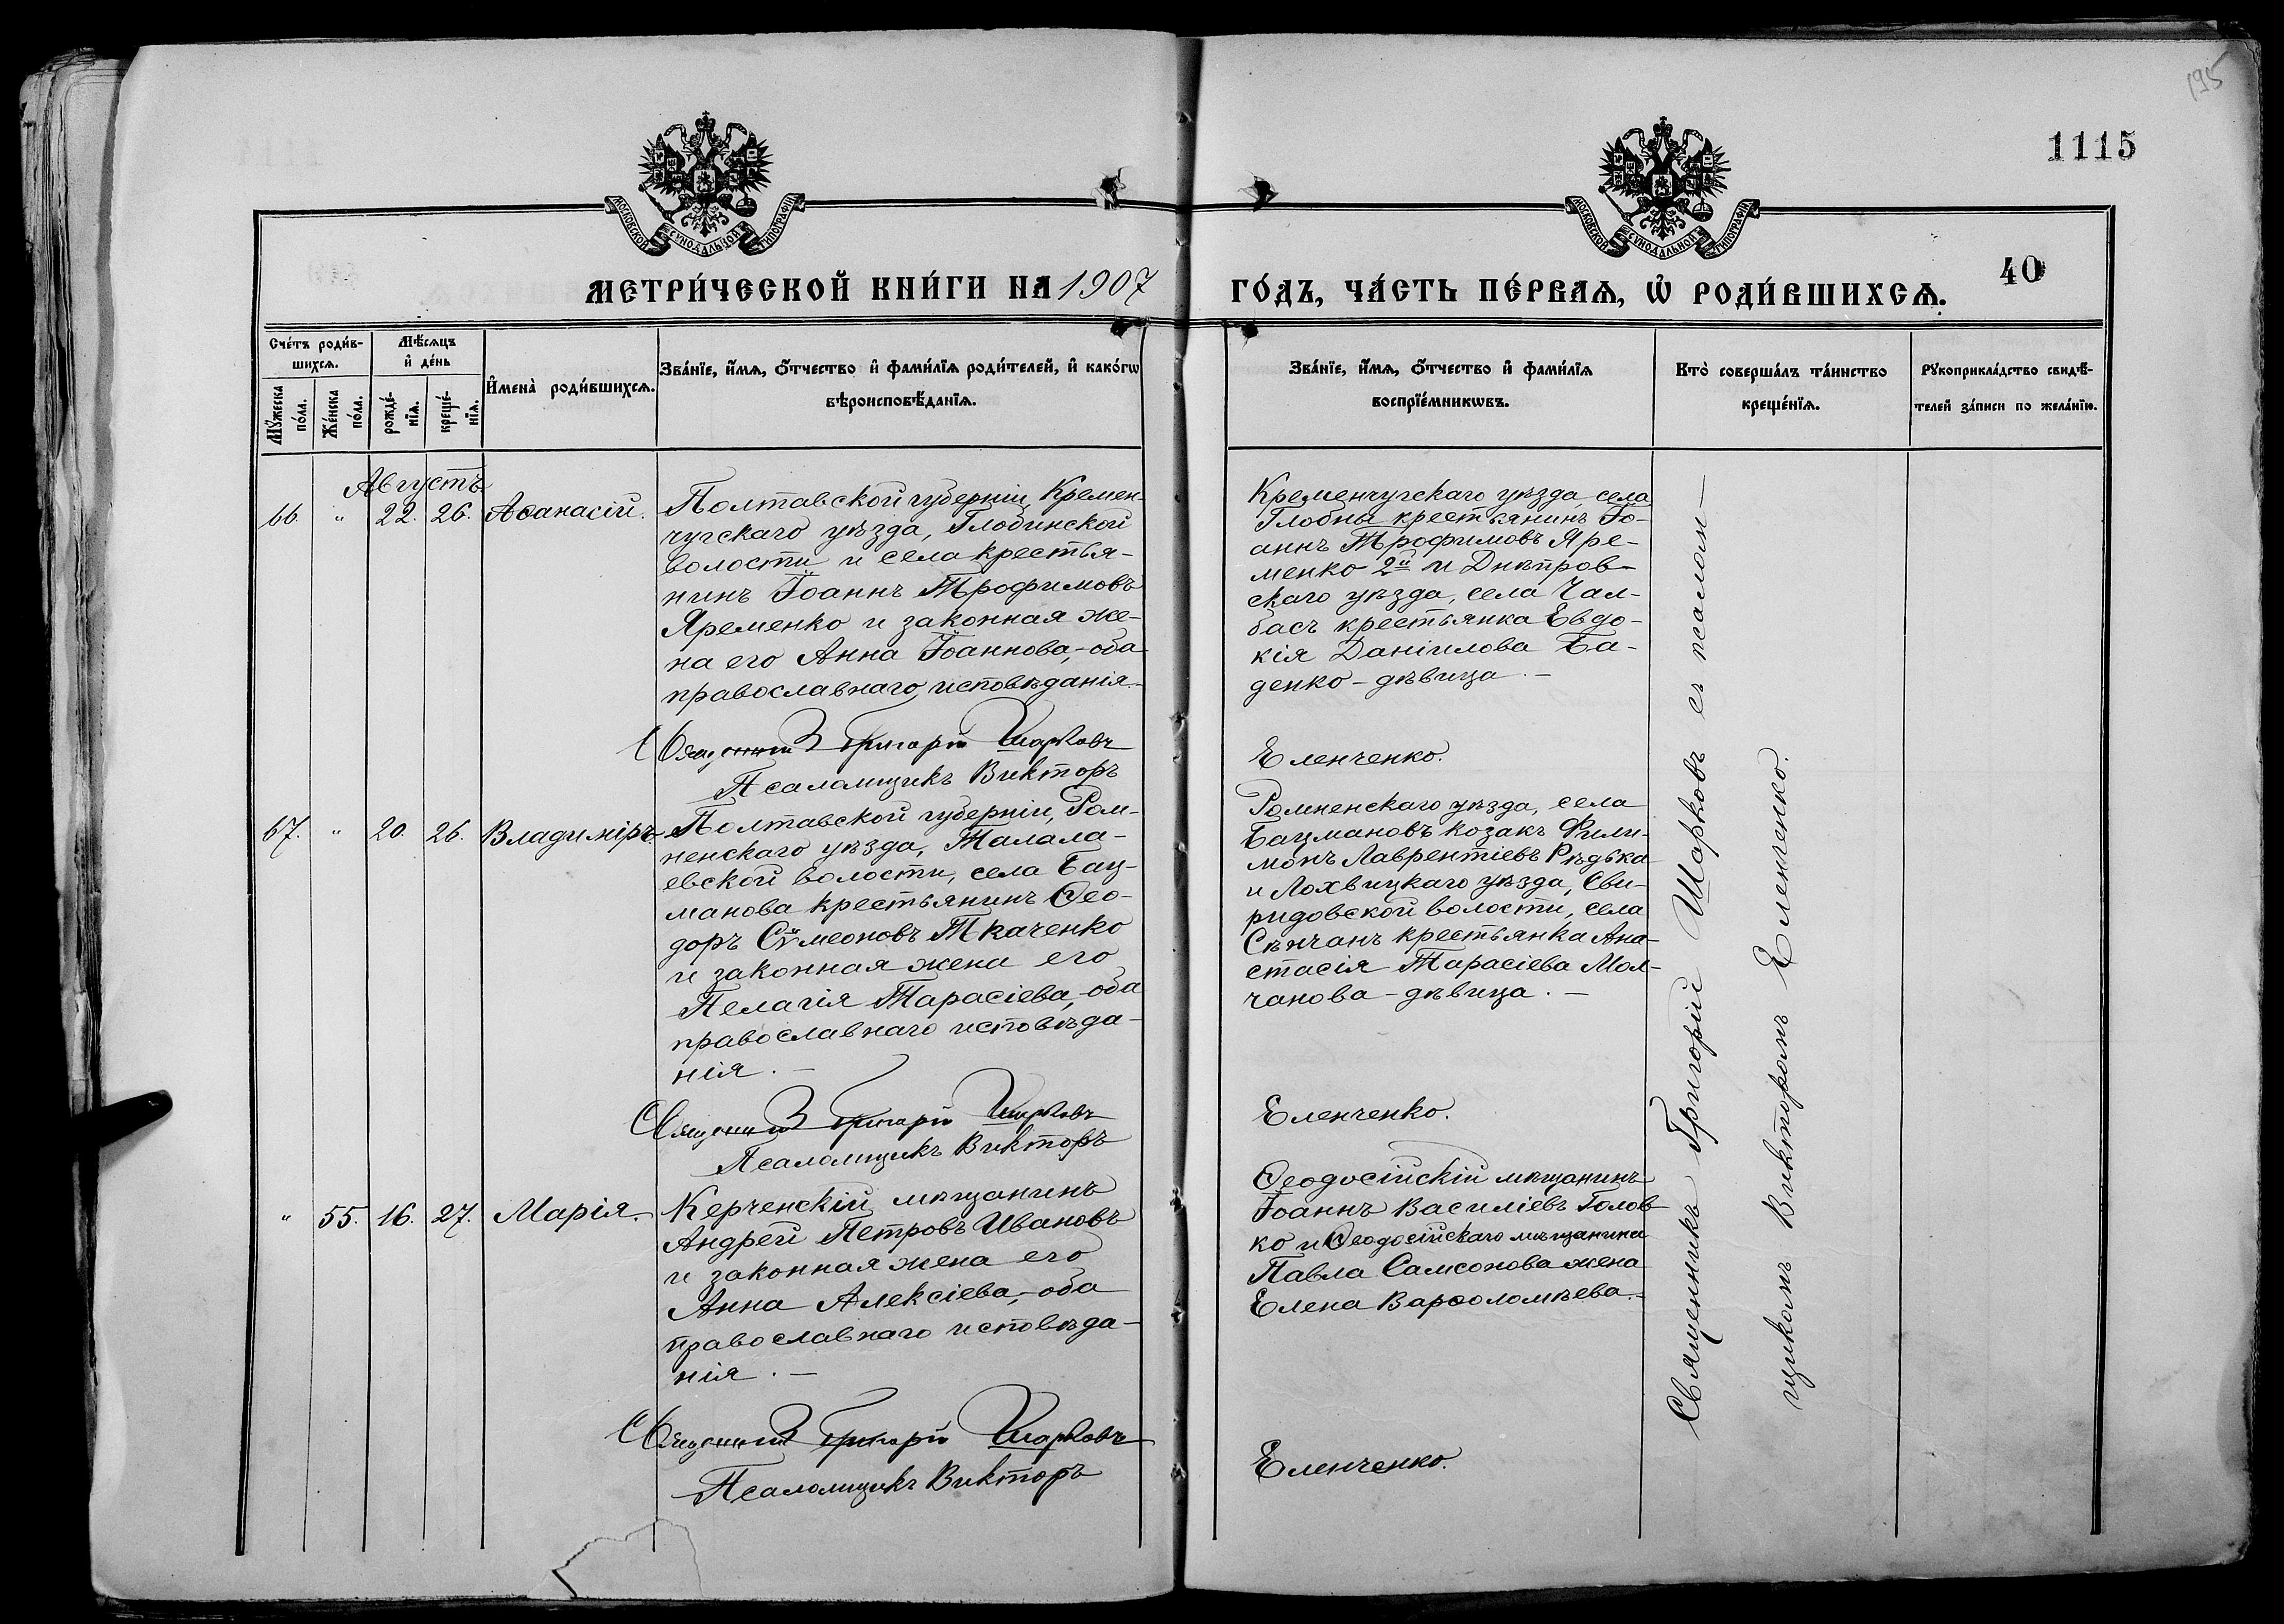 195
1115
40
МОСКОВСКОЙ СУНОДАЛЬНОЙ ТИПОГРАФІИ
МОСКОВСКОЙ СУНОДАЛЬНОЙ ТИПОГРАФІИ
МЕТРИ́ЧЕСКОЙ КНИ́ГИ НА 1907
ГО́ДЪ, ЧА́СТЬ ПЕ́РВАѦ, Ѡ҆ РОДИ́ВШИХСѦ.
Сче́тъ роди́в-
шихсѧ.
Мѣ́сѧцъ
и҆ де́нь
Мꙋ́жеска
по́ла.
Же́нска
по́ла.
рожде́-
нїѧ.
креще́-
нїѧ.
И҆мена̀ роди́вшихсѧ.
Зва́нїе, и҆́мѧ, ѻ҆́тчество и҆ фами́лїѧ роди́телей, и҆ како́гѡ
вѣроисповѣ́данїѧ.
Зва́нїе, и҆́мѧ, ѻ҆́тчество и҆ фами́лїѧ
воспрїе́мникѡвъ.
Кто̀ соверша́лъ та́инство
креще́нїѧ.
Рꙋкоприкла́дство свидѣ́-
телей за́писи по жела́нїю.
Августъ
66. " 22. 26. Аѳанасій.
Полтавской губерніи, Кремен-
чугскаго уѣзда, Глобинской
волости и села крестья-
нинъ Іоаннъ Трофимовъ
Яременко и законная же-
на его Анна Іоаннова,-оба
православнаго исповѣданія.-
Священникъ Григорій Шарковъ
Псаломщикъ Викторъ
Кременчугскаго уѣзда, села
Глобны крестьянинъ Іо-
аннъ Трофимовъ Яре-
менко 2й и Днѣпров-
скаго уѣзда, села Чал-
басъ крестьянка Евдо-
кія Даніилова Ба-
денко-дѣвица.-
Еленченко.
67. " 20. 26. Владиміръ.
Полтавской губерніи, Ром-
ненскаго уѣзда, Талала-
евской волости, села Бац-
манова крестьянинъ Ѳео-
доръ Сѵмеоновъ Ткаченко
и законная жена его
Пелагія Тарасіева,-оба
православнаго исповѣда-
нія.-
Священникъ Григорій Шарковъ
Псаломщикъ Викторъ
Ромненскаго уѣзда, села
Бацмановъ козакъ Фили-
монъ Лаврентіевъ Рѣдька
и Лохвицкаго уѣзда, Сви-
ридовской волости, села
Сѣнчанъ крестьянка Ана-
стасія Тарасіева Мол-
чанова-дѣвица.-
Еленченко.
" 55. 16. 27. Марія.
Керченскій мѣщанинъ
Андрей Петровъ Ивановъ
и законная жена его
Анна Алексіева,-оба
православнаго исповѣда-
нія.-
Священникъ Григорій Шарковъ
Псаломщикъ Викторъ
Ѳеодосійскій мѣщанинъ
Іоаннъ Василіевъ Голов-
ко и Ѳеодосійскаго мѣщанина
Павла Самсонова жена
Елена Варѳоломѣева.-
Еленченко.
Священникъ Григорій Шарковъ съ псалом-
щикомъ Викторомъ Еленченко.